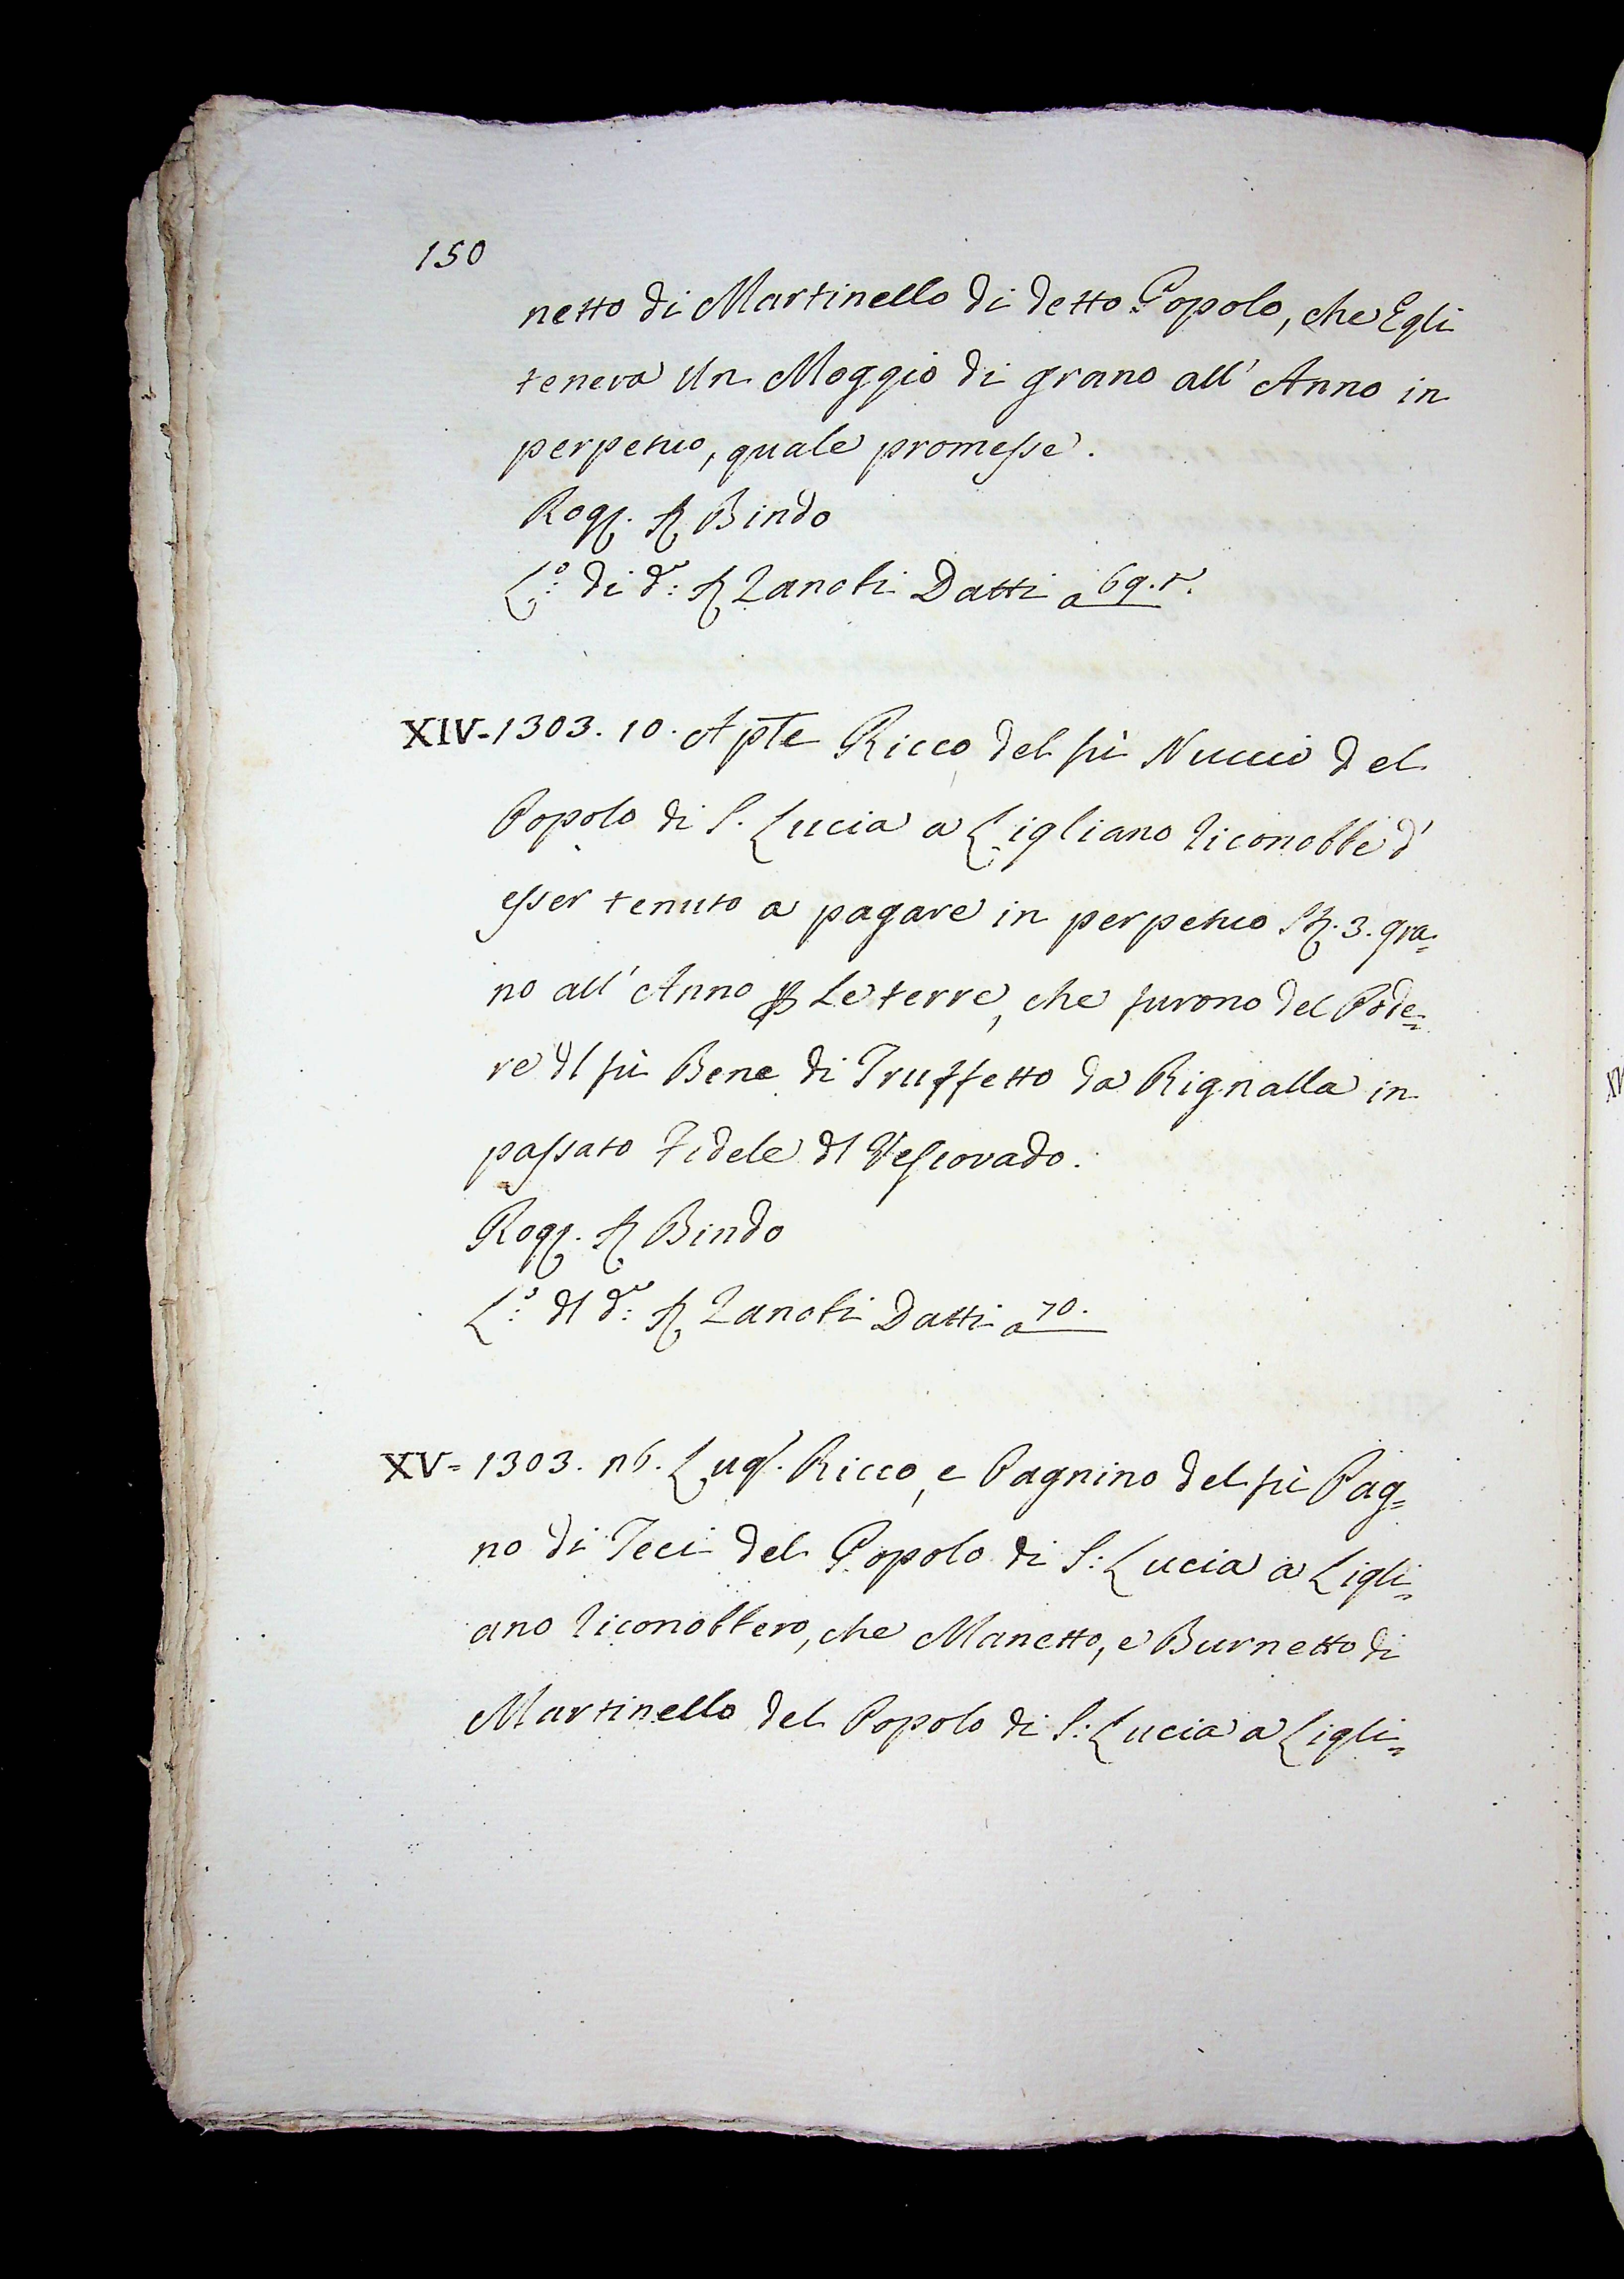 150
netto di Martinello di detto Popolo, che Egli
teneva Un Moggio di grano all' Anno in
perpetuo, quale promesse.
Rog. Sr Bindo
L.o di d.o Sr Zanobi Datti a 69. t.
XIV-1303. 10. Apte Ricco del fù Nuccio del
Popolo di S. Lucia a Ligliano riconobbe d'
esser tenuto a pagare in perpetuo St. 3. gra=
no all' Anno p Le terre, che furono del Pode=
re dl fù Bene di Truffetto da Rignalla in
passato Fidele dl Vescovado.
Rog. Sr Bindo
L.o dl d.o Sr Zanobi Datti a 70.
XV= 1303. 16. Lugl. Ricco, e Pagnino del fù Pag=
no di Teci del Popolo di S: Lucia a Ligli=
ano riconobbero, che Manetto, e Burnetto di
Martinello del Popolo di S: Lucia a Ligli=